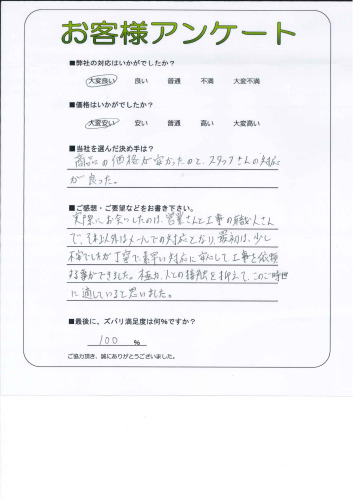 お客様アンケート
■弊社の対応はいかがでしたか?
大変良い 良い 普通 不満 大変不満
■価格はいかがでしたか?
大変安い 安い 普通 高い 大変高い
■当社を選んだ決め手は?
商品の価格が安かったのと、スタッフさんの対応
が良った。
■ご感想・ご要望などをお書き下さい。
実際にお会いしたのは、営業さんと工事の職人さん
で、それ以外はメールでの対応となり、最初は、少し
不安でしたが、丁寧で素早い対応に安心して、工事を依頼
する事ができました。極力、人との接触を抑えて、このご時世
に適していると思いました。
■最後に、ズバリ満足度は何%ですか?
100 %
ご協力頂き、誠にありがとうございました。